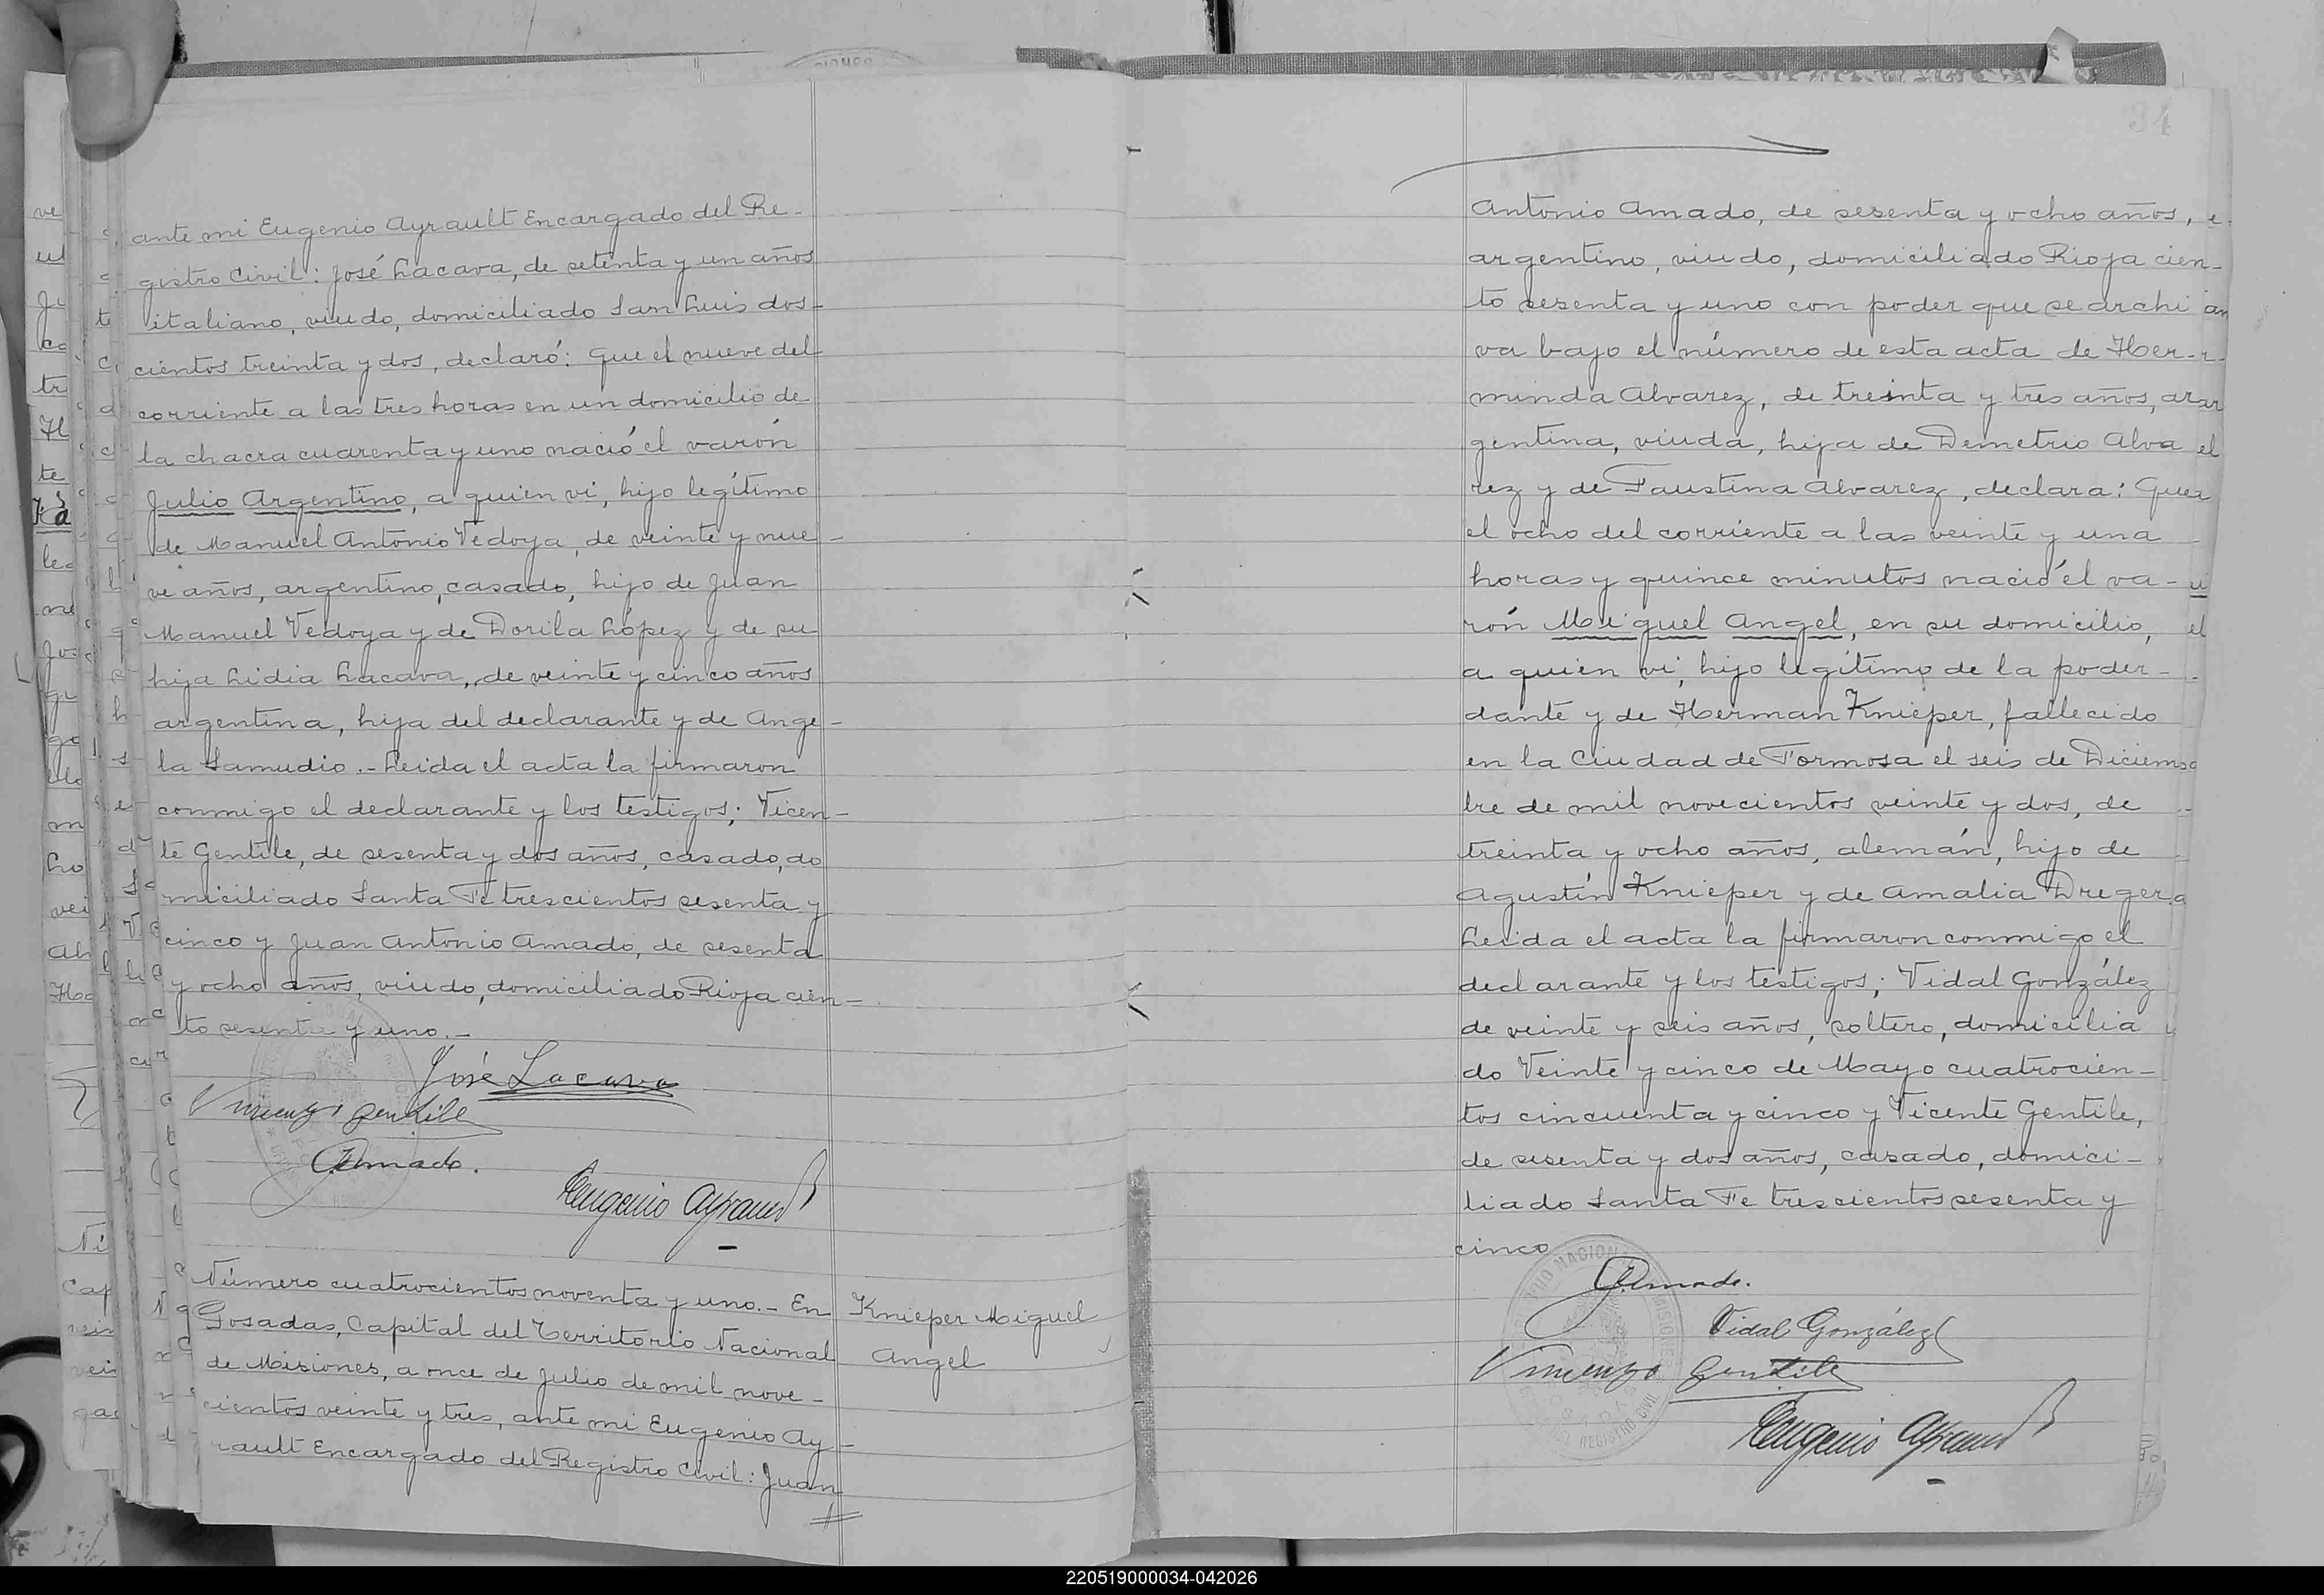 ante mi Eugenio Ayrault Encargado del Re-
gistro Civil: José Lacava, de setenta y un años
italiano, viudo, domiciliado San Luis dos-
cientos treinta y dos, declaró: Que el nueve del
corriente a las tres horas en un domicilio de
la chacra cuarenta y uno nació el varón
Julio Argentino, a quien vi, hijo legítimo
de Manuel Antonio Vedoya, de veinte y nue-
ve años, argentino, casado, hijo de Juan
Manuel Vedoya y de Dorila López y de su
hija Lidia Lacava, de veinte y cinco años
argentina, hija del declarante y de Ange-
la Samudio.- Leida el acta la firmaron
conmigo el declarante y los testigos; Vicen-
te Gentile, de sesenta y dos años, casado, do
miciliado Santa Fe trescientos sesenta y
cinco y Juan Antonio Amado, de sesenta
y ocho años, viudo, domiciliado Rioja cien-
to sesenta y uno.-
José Lacava
Vincenzo Gentile
Amado.
Eugenio Ayrault
Número cuatrocientos noventa y uno.- En
Posadas, Capital del Territorio Nacional
de Misiones, a once de Julio de mil nove-
cientos veinte y tres, ante mi Eugenio Ay-
rault Encargado del Registro Civil: Juan
Knieper Miguel
Angel
34
Antonio Amado, de sesenta y ocho años,
argentino, viudo, domiciliado Rioja cien-
to sesenta y uno con poder que se archi
va bajo el número de esta acta de Her-
minda Alvarez, de treinta y tres años, ar
gentina, viuda, hija de Demetrio Alva
rez y de Faustina Alvarez, declara: Que
el ocho del corriente a las veinte y una
horas y quince minutos nació el va-
rón Miguel Angel, en su domicilio,
a quien vi, hijo legítimo de la poder-
dante y de Herman Knieper, fallecido
en la Ciudad de Formosa el seis de Diciem
bre de mil novecientos veinte y dos, de
treinta y ocho años, alemán, hijo de
Agustín Knieper y de Amalia Dreger.
Leida el acta la firmaron conmigo el
declarante y los testigos; Vidal González
de veinte y seis años, soltero, domicilia
do Veinte y cinco de Mayo cuatrocien-
tos cincuenta y cinco y Vicente Gentile,
de sesenta y dos años, casado, domici-
liado Santa Fe trescientos sesenta y
cinco
Amado.
Vidal González
Vincenzo Gentile
Eugenio Ayrault
220519000034-042026